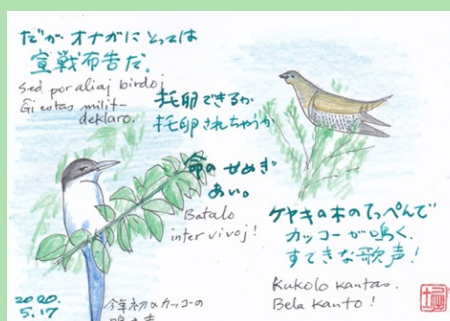 だが オナガに とっては
宣戦布告だ。
Sed por aliaj birdoj
Ĝi estas milit-
deklaro.
托卵できるか
托卵されちゃうか
命の せめぎ
あい。
Batalo
inter vivoj!
ケヤキの木のてっぺんで
カッコーが鳴く、
すてきな歌声!
Kukolo kantas.
Bela kanto!
2020.
5.17
今年初のカッコーの